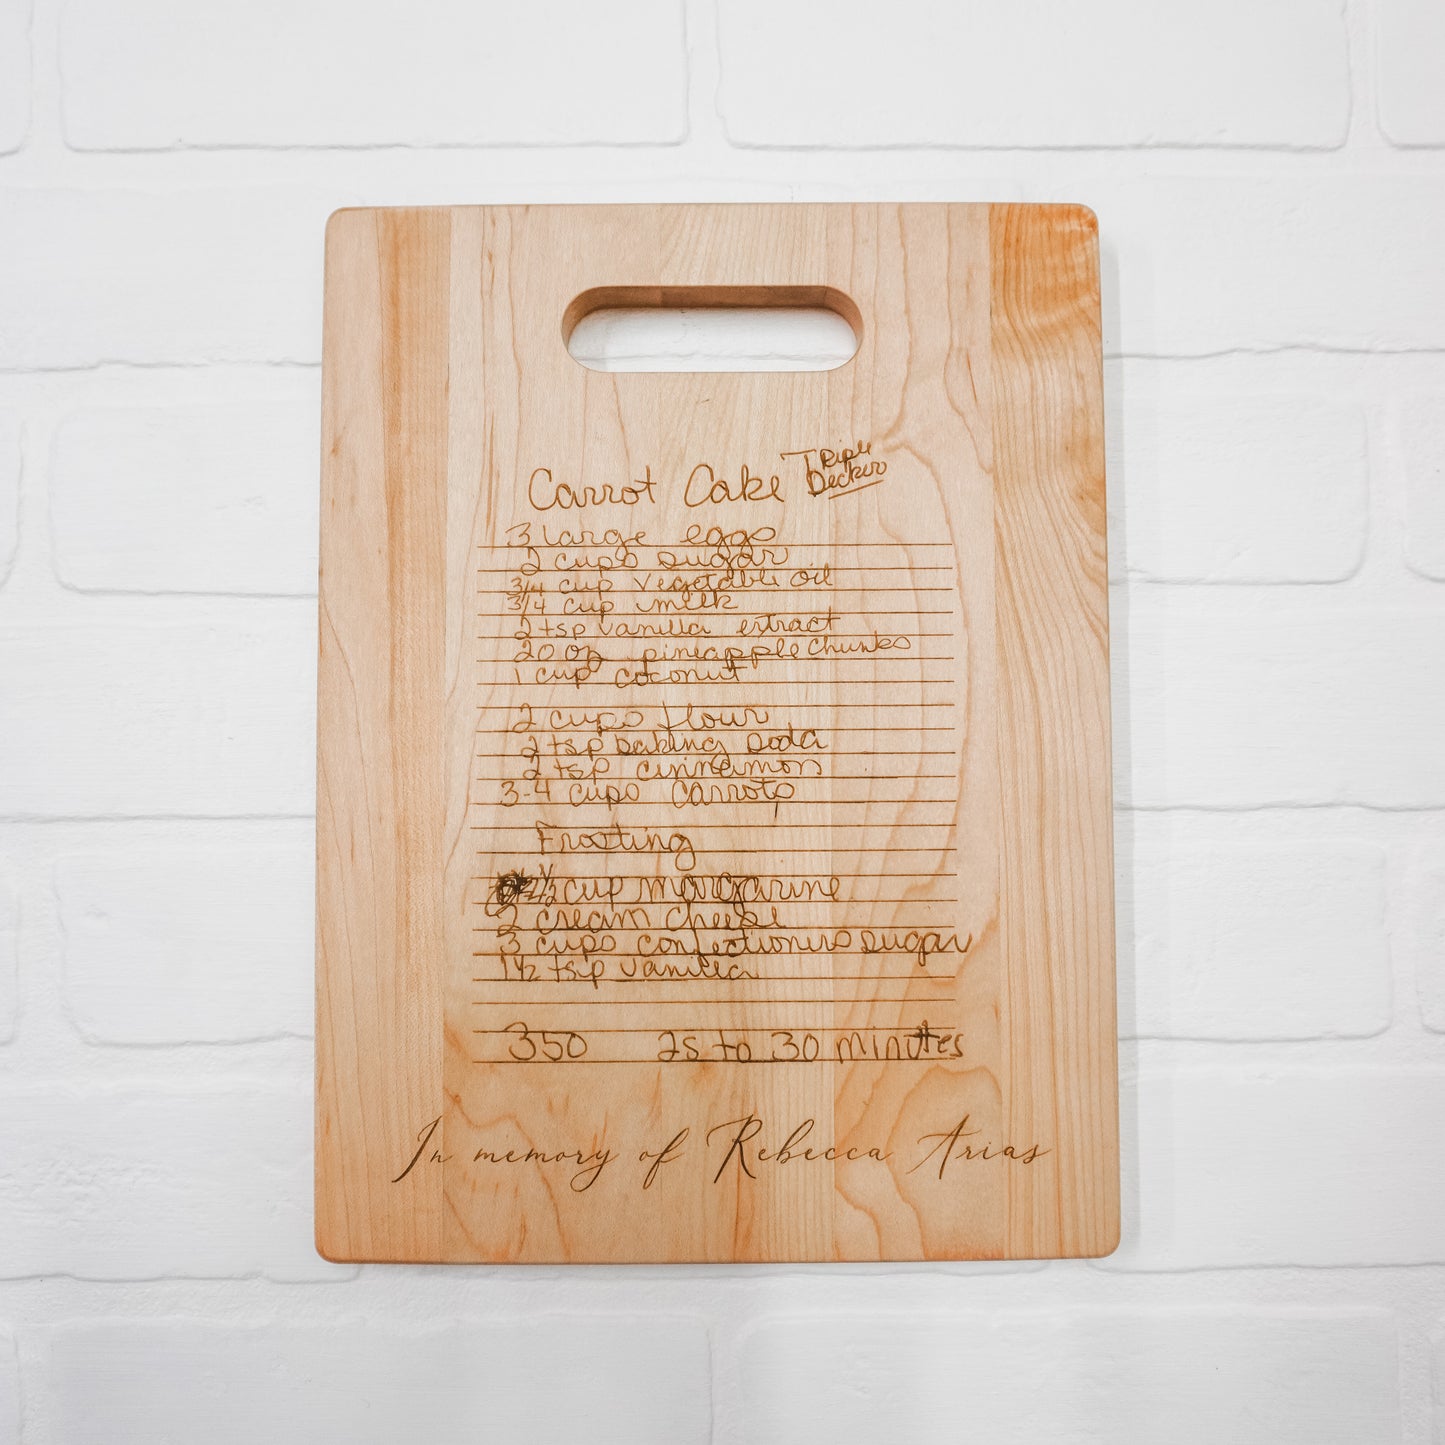 Carrot Cake Triple Decker
3 large eggs
2 cups sugar
3/4 cup vegetable oil
3/4 cup milk
2 tsp vanilla extract
20 oz pineapple chunks
1 cup coconut
2 cups flour
2 tsp baking soda
2 tsp cinnamon
3-4 cups carrots
Frosting
1/2 cup margarine
2 cream cheese
3 cups confectioners sugar
1 1/2 tsp vanilla
350 25 to 30 minutes
In memory of Rebecca Arias